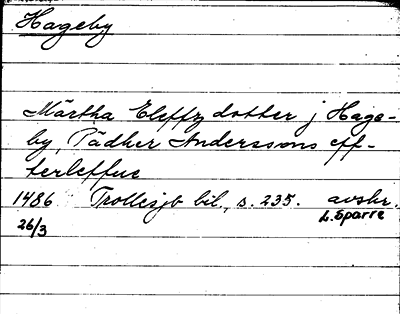 Hageby
Märtha Eleffz dotter j Hage-
by, Pädher Anderssons eff-
terleffue
1486 Trollesjb bil., s. 235. avskr.
26/3 L. Sparre